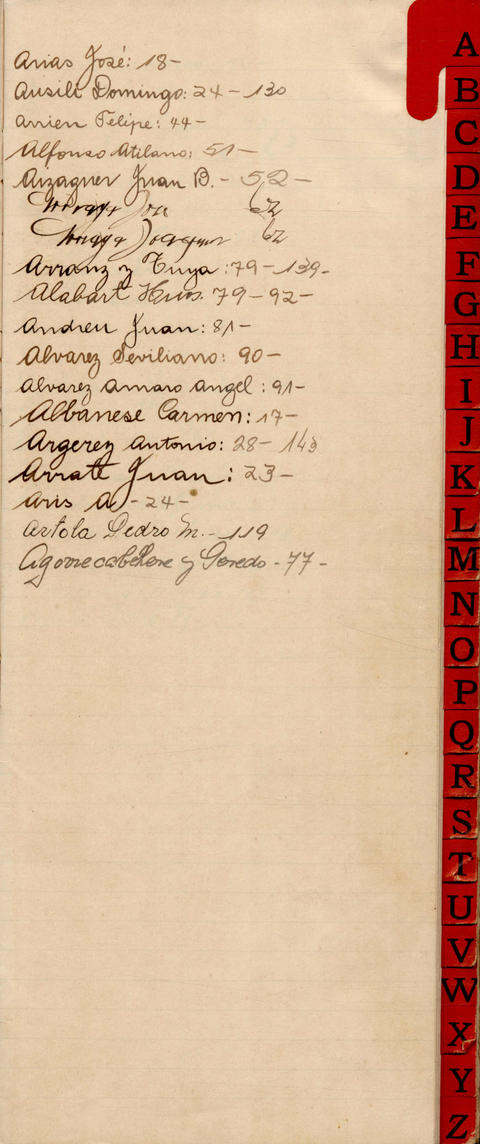 Arias José: 18-
Ausili Domingo: 24 - 130
Arrien Felipe: 44-
Alfonso Atilano: 51-
Aizaguer Juan B. - 52 -
62
62
Arranz y Tuya: 79 - 139-
Alabart Hnos. 79 - 92-
Andreu Juan: 81-
Alvarez Seviliano: 90-
Alvarez Amaro Angel: 91-
Albanese Carmen: 17-
Argerey Antonio: 28- 143
Arrate Juan: 23-
Aris A. - 24-
Artola Pedro M. - 119
y - 77 -
A
B
C
D
E
F
G
H
I
J
K
L
M
N
O
P
Q
R
S
T
U
V
W
X
Y
Z